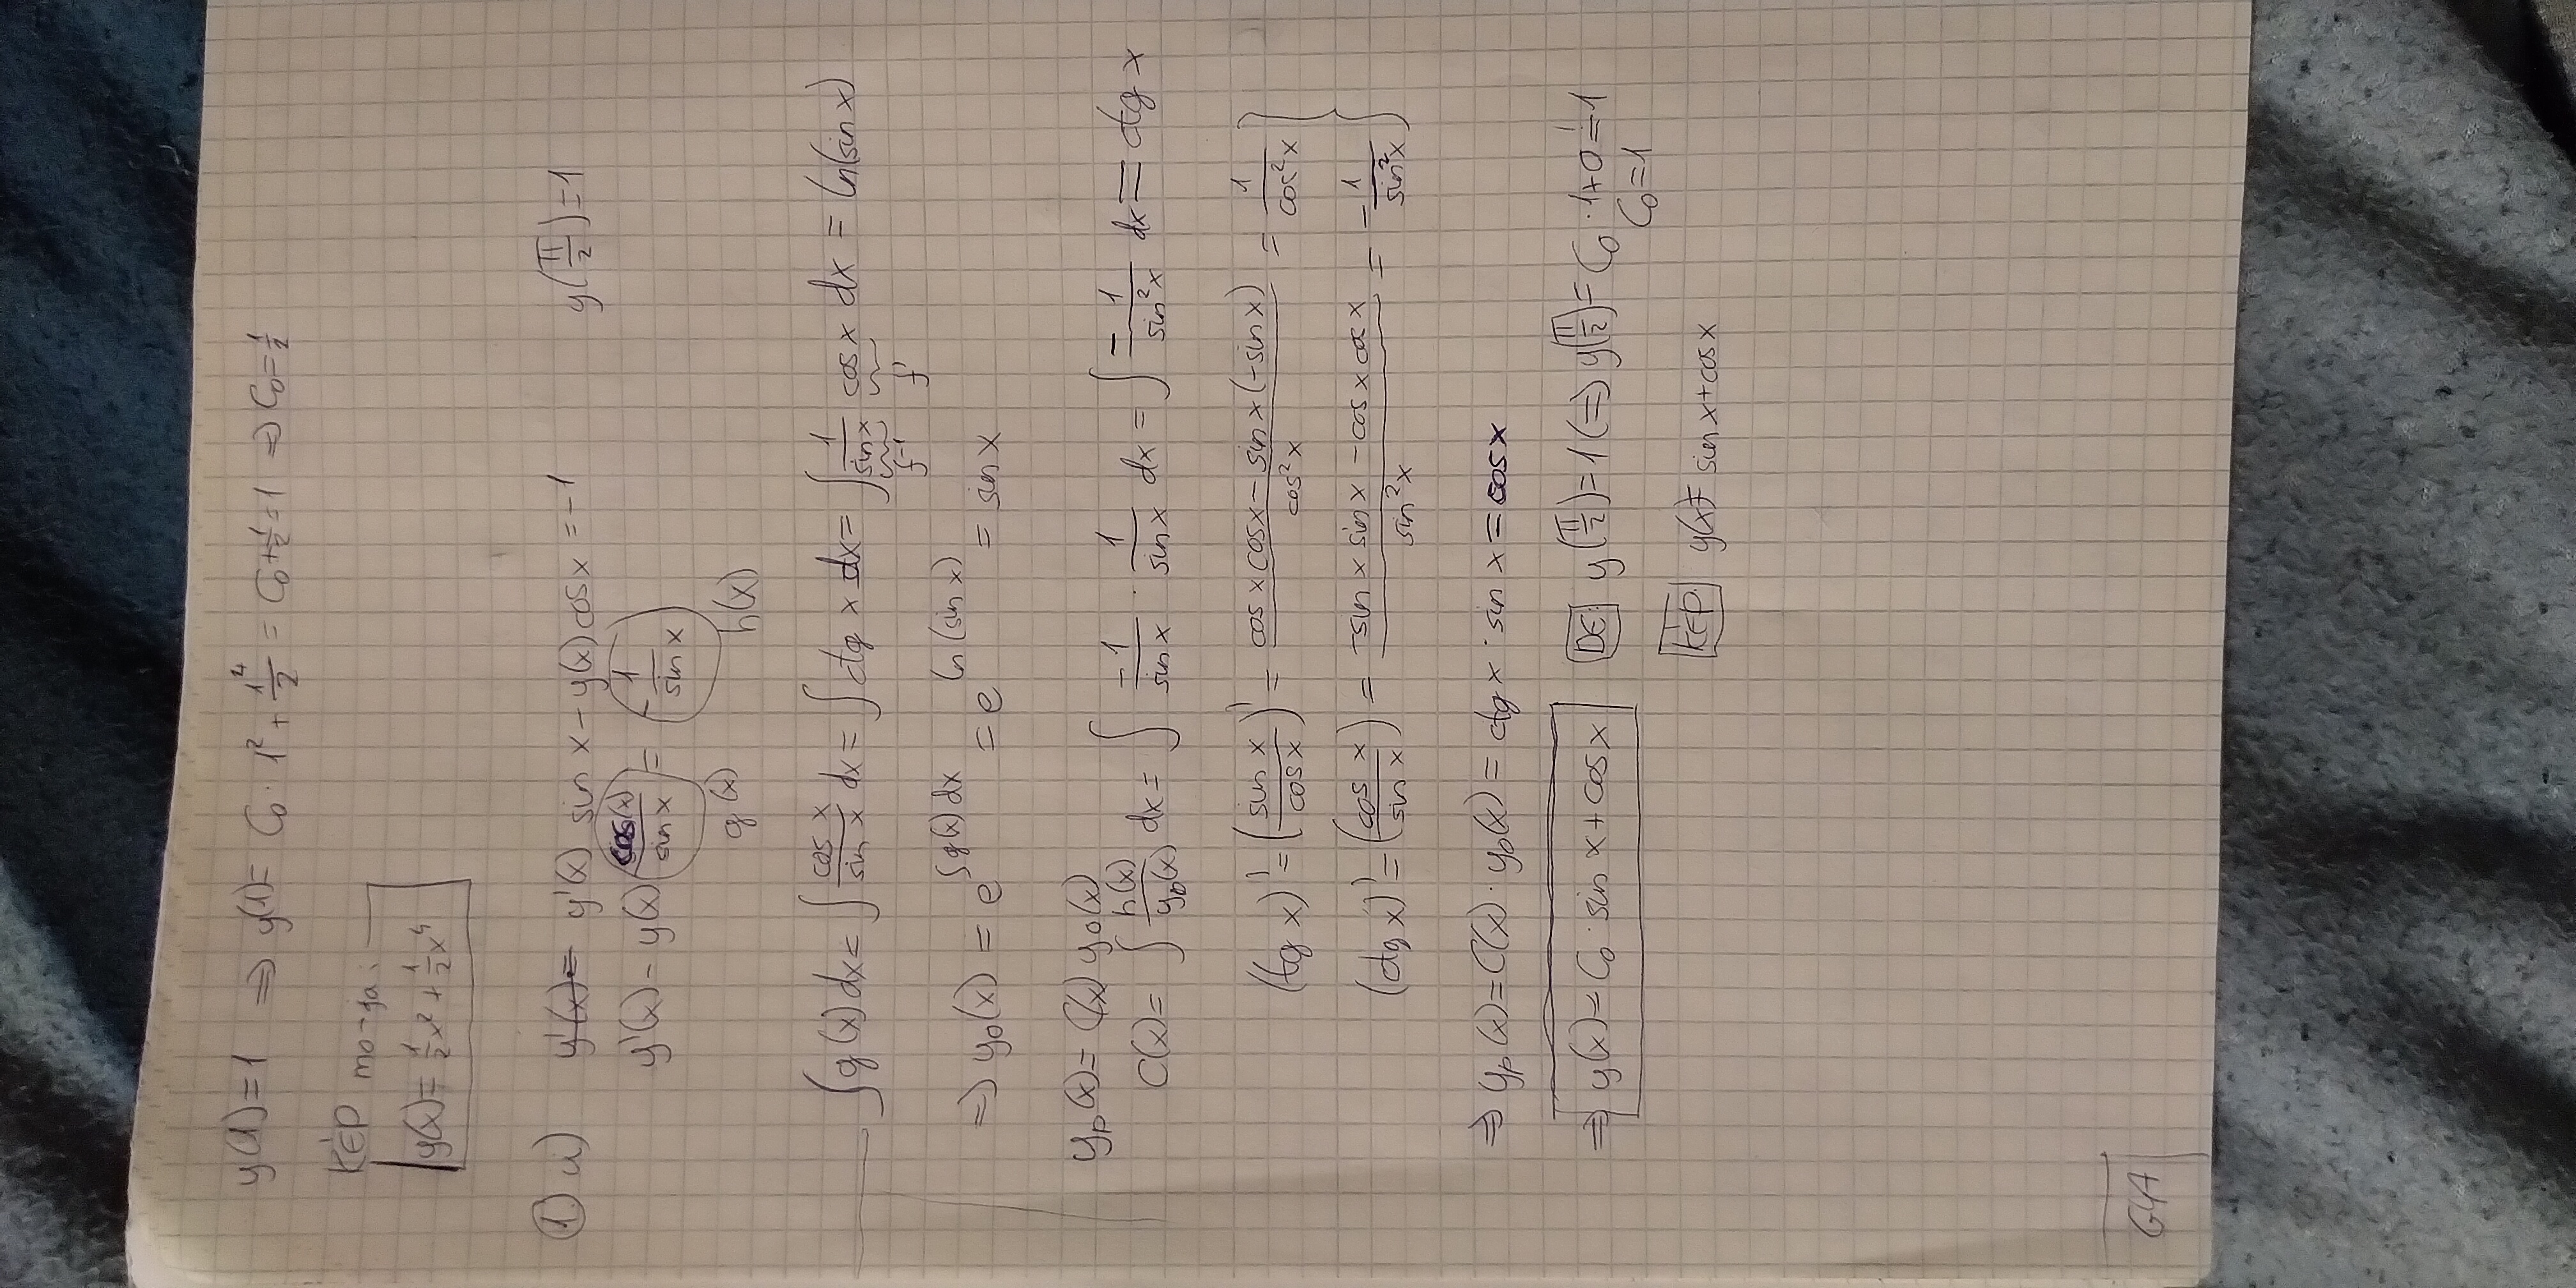 y(1)=1 ⇒ y(1)= C₀·1²+1⁴/2 = C₀+1/2=1 ⇒ C₀=1/2
KÉP mo-ja:
y(x)= 1/2x² + 1/2x⁴
1. a) y'(x)= y'(x) sin x - y(x) cos x = -1 y(π/2)=1
y'(x) - y(x) cos(x)/sin x = -1/sin x
g(x) h(x)
∫g(x)dx = ∫cos x/sin x dx = ∫ctg x dx = ∫1/sin x cos x dx = ln(sin x)
f⁻¹ f'
⇒ y₀(x) = e^∫g(x)dx = e^ln(sin x) = sin x
yₚ(x)= C(x) y₀(x)
C(x)= ∫h(x)/y₀(x) dx = ∫-1/sin x · 1/sin x dx = ∫-1/sin²x dx = ctg x
(tg x)' = (sin x/cos x)' = cos x cos x - sin x(-sin x)/cos²x = 1/cos²x }
(ctg x)' = (cos x/sin x) = -sin x sin x - cos x cos x/sin²x = -1/sin²x
⇒ yₚ(x)=C(x)·y₀(x) = ctg x · sin x = cos x
⇒ y(x)= C₀·sin x + cos x DE: y(π/2)=1 (⇒) y(π/2)= C₀·1+0 =! 1
C₀=1
KÉP: y(x)= sin x + cos x
GYA